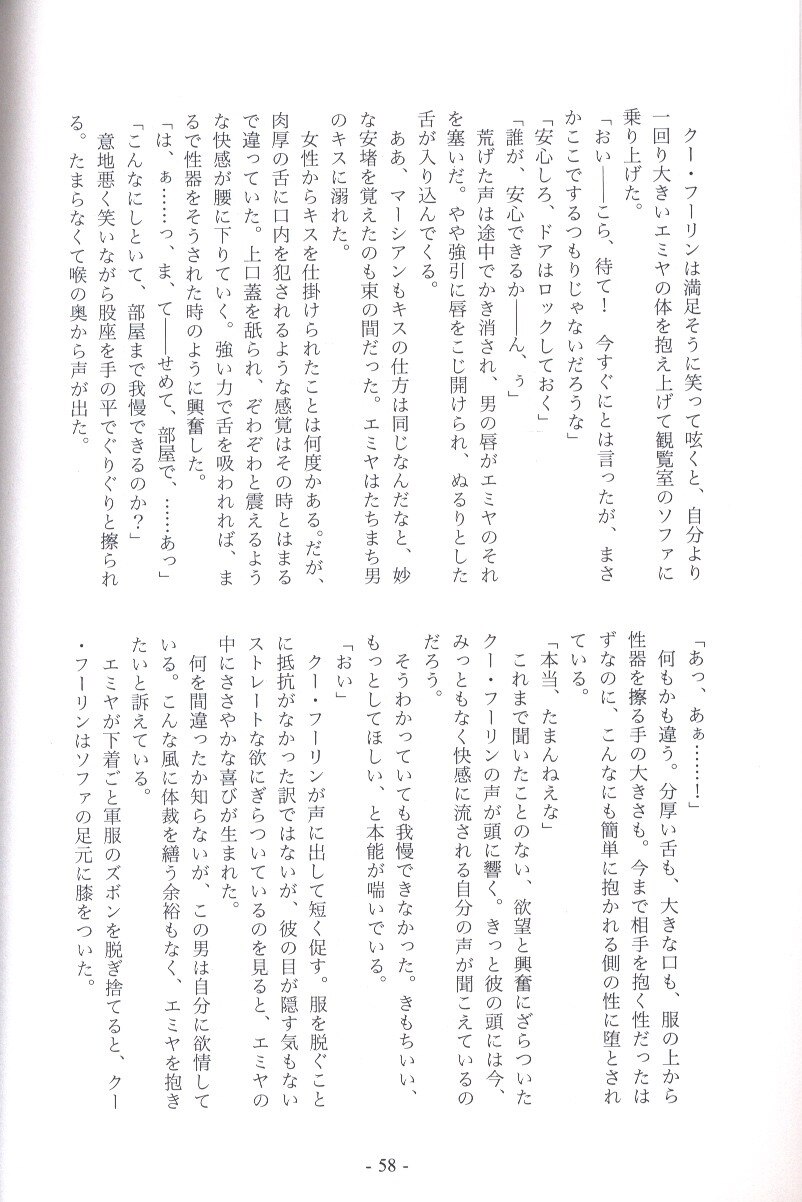 クー・フーリンは満足そうに笑って呟くと、自分より
一回り大きいエミヤの体を抱え上げて観覧室のソファに
乗り上げた。
「おい――こら、待て！　今すぐにとは言ったが、まさ
かここでするつもりじゃないだろうな」
「安心しろ、ドアはロックしておく」
「誰が、安心できるか――ん、ぅ」
　荒げた声は途中でかき消され、男の唇がエミヤのそれ
を塞いだ。やや強引に唇をこじ開けられ、ぬるりとした
舌が入り込んでくる。
　ああ、マーシアンもキスの仕方は同じなんだなと、妙
な安堵を覚えたのも束の間だった。エミヤはたちまち男
のキスに溺れた。
　女性からキスを仕掛けられたことは何度かある。だが、
肉厚の舌に口内を犯されるような感覚はその時とはまる
で違っていた。上口蓋を舐られ、ぞわぞわと震えるよう
な快感が腰に下りていく。強い力で舌を吸われれば、ま
るで性器をそうされた時のように興奮した。
「は、ぁ……っ、ま、て――せめて、部屋で、……あっ」
「こんなにしといて、部屋まで我慢できるのか？」
　意地悪く笑いながら股座を手の平でぐりぐりと擦られ
る。たまらなくて喉の奥から声が出た。
「あっ、あぁ……！」
　何もかも違う。分厚い舌も、大きな口も、服の上から
性器を擦る手の大きさも。今まで相手を抱く性だったは
ずなのに、こんなにも簡単に抱かれる側の性に堕とされ
ている。
「本当、たまんねえな」
　これまで聞いたことのない、欲望と興奮にざらついた
クー・フーリンの声が頭に響く。きっと彼の頭には今、
みっともなく快感に流される自分の声が聞こえているの
だろう。
　そうわかっていても我慢できなかった。きもちいい、
もっとしてほしい、と本能が喘いでいる。
「おい」
　クー・フーリンが声に出して短く促す。服を脱ぐこと
に抵抗がなかった訳ではないが、彼の目が隠す気もない
ストレートな欲にぎらついているのを見ると、エミヤの
中にささやかな喜びが生まれた。
　何を間違ったか知らないが、この男は自分に欲情して
いる。こんな風に体裁を繕う余裕もなく、エミヤを抱き
たいと訴えている。
　エミヤが下着ごと軍服のズボンを脱ぎ捨てると、クー
・フーリンはソファの足元に膝をついた。
- 58 -